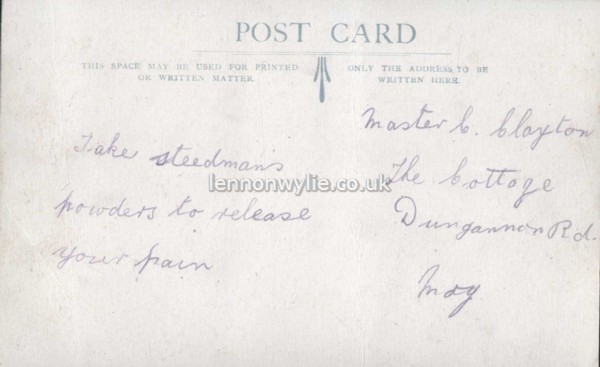 POST CARD
THIS SPACE MAY BE USED FOR PRINTED
OR WRITTEN MATTER.
ONLY THE ADDRESS TO BE
WRITTEN HERE.
Take steedman's
powders to release
your pain
Master C. Claxton
The Cottage
Dungannon Rd.
Moy
lennonwylie.co.uk